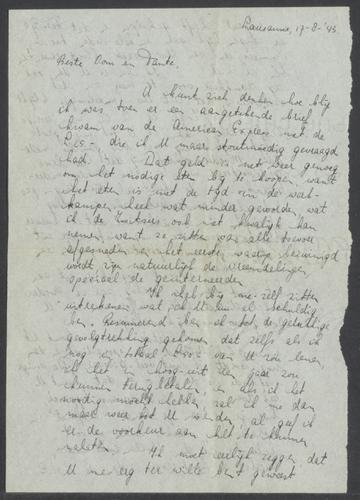 Lausanne, 17-8-'43
Beste Oom en Tante,
U kunt zich denken hoe blij
ik was toen er een aangetekende brief
kwam van de American Express met de
die ik U maar stoutmoedig gevraagd
had. Dat geld is net zeer genoeg
om het nodige eten bij te koopen want
het eten is met de tijd in de werk-
kampen heel wat minder geworden wat
ik de Zwitsers ook niet kwalijk kan
nemen, want ze zitten van alle toevoer
afgesneden en het eerste wat bezuinigd
wordt zijn natuurlijk de vreemdelingen
speciaal de geinterneerden
Ik bij me-zelf zitten
uitrekenen wat ik U nu al schuldig
ben. Resumeerend ben ik tot de gelukkige
gevolgtrekking gekomen dat zelfs als ik
nog van U zou lenen
ik het in hoog-uit een jaar zou
kunnen terugbetalen, en als ik het
noodig mocht hebben, zal ik me dan
maar weer tot U wenden, al geef ik
er de voorkeur aan het te kunnen
nalaten.
Ik moet eerlijk zeggen dat
U me erg ter wille bent geweest